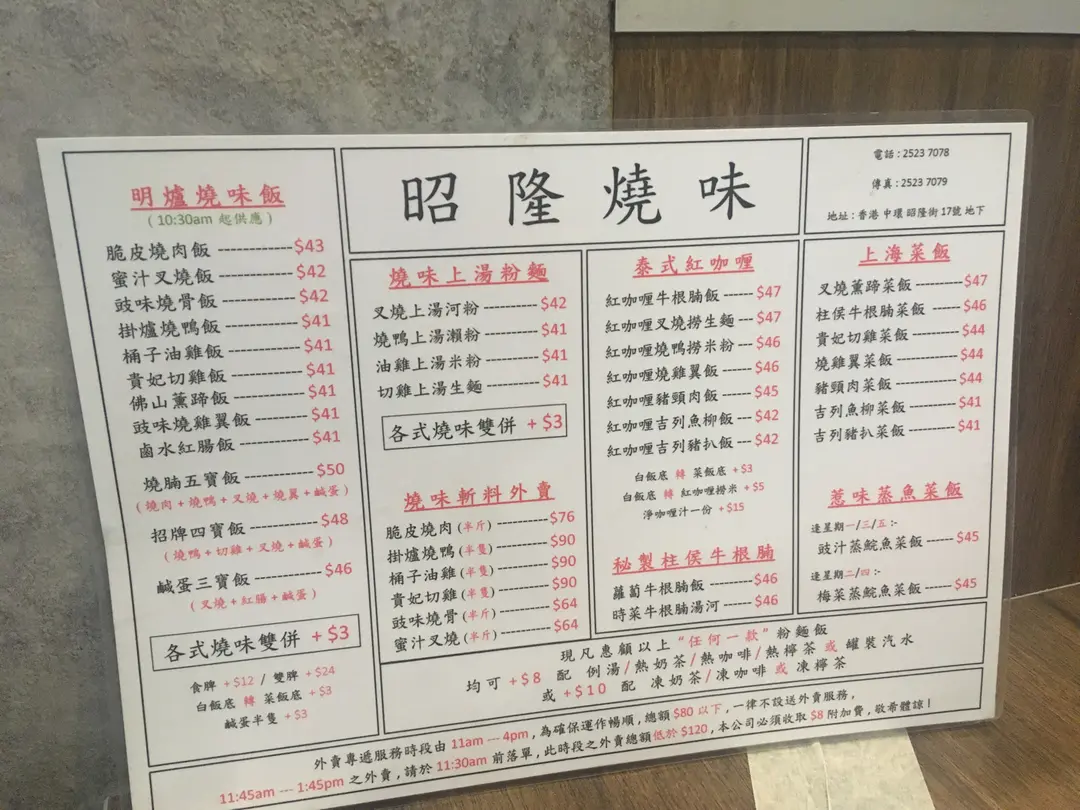 明爐燒味飯
( 10:30am 起供應 )
脆皮燒肉飯 ------------- $43
蜜汁叉燒飯 ------------- $42
豉味燒骨飯 ------------- $42
掛爐燒鴨飯 ------------- $41
桶子油雞飯 ------------- $41
貴妃切雞飯 ------------- $41
佛山薰蹄飯 ------------- $41
豉味燒雞翼飯 ---------- $41
鹵水紅腸飯 ------------- $41
燒腩五寶飯 ------------- $50
( 燒肉 + 燒鴨 + 叉燒 + 燒翼 + 鹹蛋 )
招牌四寶飯 ------------- $48
( 燒鴨 + 切雞 + 叉燒 + 鹹蛋 )
鹹蛋三寶飯 ------------- $46
( 叉燒 + 紅腸 + 鹹蛋 )
各式燒味雙併 + $3
食牌 + $12 / 雙牌 + $24
白飯底 轉 菜飯底 + $3
鹹蛋半隻 + $3
昭隆燒味
電話 : 2523 7078
傳真 : 2523 7079
地址 : 香港 中環 昭隆街 17號 地下
燒味上湯粉麵
叉燒上湯河粉 ---------- $42
燒鴨上湯瀨粉 ---------- $41
油雞上湯米粉 ---------- $41
切雞上湯生麵 ---------- $41
各式燒味雙併 + $3
燒味斬料外賣
脆皮燒肉 (半斤) ---------- $76
掛爐燒鴨 (半隻) ---------- $90
桶子油雞 (半隻) ---------- $90
貴妃切雞 (半隻) ---------- $90
豉味燒骨 (半斤) ---------- $64
蜜汁叉燒 (半斤) ---------- $64
泰式紅咖喱
紅咖喱牛根腩飯 ------ $47
紅咖喱叉燒撈生麵 --- $47
紅咖喱燒鴨撈米粉 --- $46
紅咖喱燒雞翼飯 ------ $46
紅咖喱豬頸肉飯 ------ $45
紅咖喱吉列魚柳飯 --- $42
紅咖喱吉列豬扒飯 --- $42
白飯底 轉 菜飯底 + $3
白飯底 轉 紅咖喱撈米 + $5
淨咖喱汁一份 + $15
秘製柱侯牛根腩
蘿蔔牛根腩飯 -------- $46
時菜牛根腩湯河 ----- $46
上海菜飯
叉燒薰蹄菜飯 -------- $47
柱侯牛根腩菜飯 ------ $46
貴妃切雞菜飯 -------- $44
燒雞翼菜飯 ---------- $44
豬頸肉菜飯 ---------- $44
吉列魚柳菜飯 -------- $41
吉列豬扒菜飯 -------- $41
惹味蒸魚菜飯
逢星期一/三/五 :-
豉汁蒸鯇魚菜飯 ----- $45
逢星期二/四 :-
梅菜蒸鯇魚菜飯 ----- $45
現凡惠顧以上 "任何一款" 粉麵飯
均可 + $8 配 例湯/熱奶茶/熱咖啡/熱檸茶 或 罐裝汽水
或 + $10 配 凍奶茶/凍咖啡 或 凍檸茶
外賣專遞服務時段由 11am --- 4pm , 為確保運作暢順 , 總額 $80 以下 , 一律不設送外賣服務 ,
11:45am --- 1:45pm 之外賣 , 請於 11:30am 前落單 , 此時段之外賣總額低於 $120 , 本公司必須收取 $8 附加費 , 敬希體諒 !